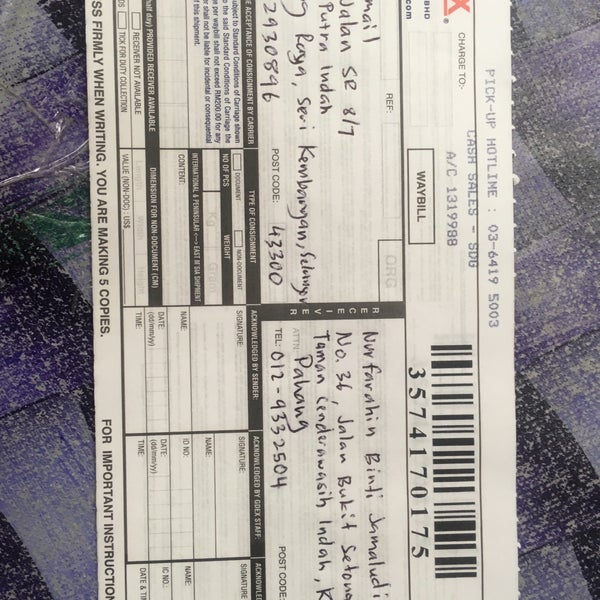 PICK-UP HOTLINE : 03-6419 5003
X ®
BHD
.com
CHARGE TO:-
CASH SALES - SDG
A/C 1319988
WAYBILL
35741701 75
REF:
ORG
mail
Jalan SR 8/7
Putra Indah
Raya, Seri Kembangan, Selangor
2930896
POST CODE: 43300
RECEIVER
Nurfarahin Binti Jamaludi
No. 36, Jalan Bukit Setong
Taman Cenderawasih Indah, K
ATTN
Pahang
TEL: 012-9332504
POST CODE:
ACCEPTANCE OF CONSIGNMENT BY CARRIER
subject to Standard Conditions of Carriage shown
to the said Standard Conditions of Carriage the
per waybill shall not exceed RM200.00 for any
r shall not be liable for incidental or consequential
of this shipment.
half day) PROVIDED RECEIVER AVAILABLE
RECEIVER NOT AVAILABLE
TICK FOR DUTY COLLECTION
TYPE OF CONSIGNMENT
DOCUMENT
NON-DOCUMENT
NO OF PCS
WEIGHT
Kg
Gram
INTERNATIONAL & PENINSULAR <--> EAST M'SIA SHIPMENT
CONTENT:
DIMENSION FOR NON-DOCUMENT (CM)
VALUE (NON-DOC) : US$
ACKNOWLEDGED BY SENDER:
SIGNATURE:
NAME:
DATE:
(dd/mm/yy)
TIME:
ACKNOWLEDGED BY GDEX STAFF:
SIGNATURE:
NAME:
ID NO:
DATE:
(dd/mm/yy)
TIME:
ACKNOWLE
SIGNATURE
NAME:
IC NO.:
DATE & TI
SS FIRMLY WHEN WRITING. YOU ARE MAKING 5 COPIES.
FOR IMPORTANT INSTRUCTION